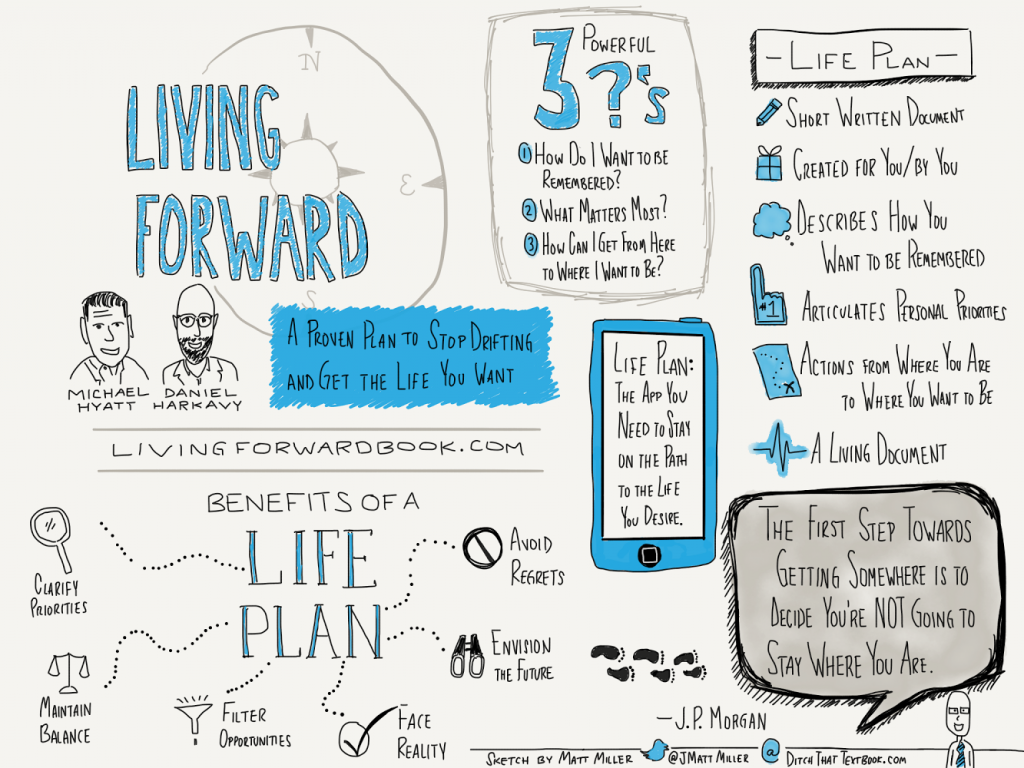 LIVING
FORWARD
N
E
S
MICHAEL
HYATT
DANIEL
HARKAVY
A PROVEN PLAN TO STOP DRIFTING
AND GET THE LIFE YOU WANT
LIVINGFORWARDBOOK.COM
3 POWERFUL
?'S
1 HOW DO I WANT TO BE
REMEMBERED?
2 WHAT MATTERS MOST?
3 HOW CAN I GET FROM HERE
TO WHERE I WANT TO BE?
- LIFE PLAN -
SHORT WRITTEN DOCUMENT
CREATED FOR YOU/BY YOU
DESCRIBES HOW YOU
WANT TO BE REMEMBERED
#1
ARTICULATES PERSONAL PRIORITIES
ACTIONS FROM WHERE YOU ARE
TO WHERE YOU WANT TO BE
A LIVING DOCUMENT
LIFE PLAN:
THE APP YOU
NEED TO STAY
ON THE PATH
TO THE LIFE
YOU DESIRE.
BENEFITS OF A
LIFE
PLAN
CLARIFY
PRIORITIES
MAINTAIN
BALANCE
FILTER
OPPORTUNITIES
FACE
REALITY
ENVISION
THE FUTURE
AVOID
REGRETS
THE FIRST STEP TOWARDS
GETTING SOMEWHERE IS TO
DECIDE YOU'RE NOT GOING TO
STAY WHERE YOU ARE.
—J.P. MORGAN
SKETCH BY MATT MILLER @JMATTMILLER @ DITCHTHATTEXTBOOK.COM